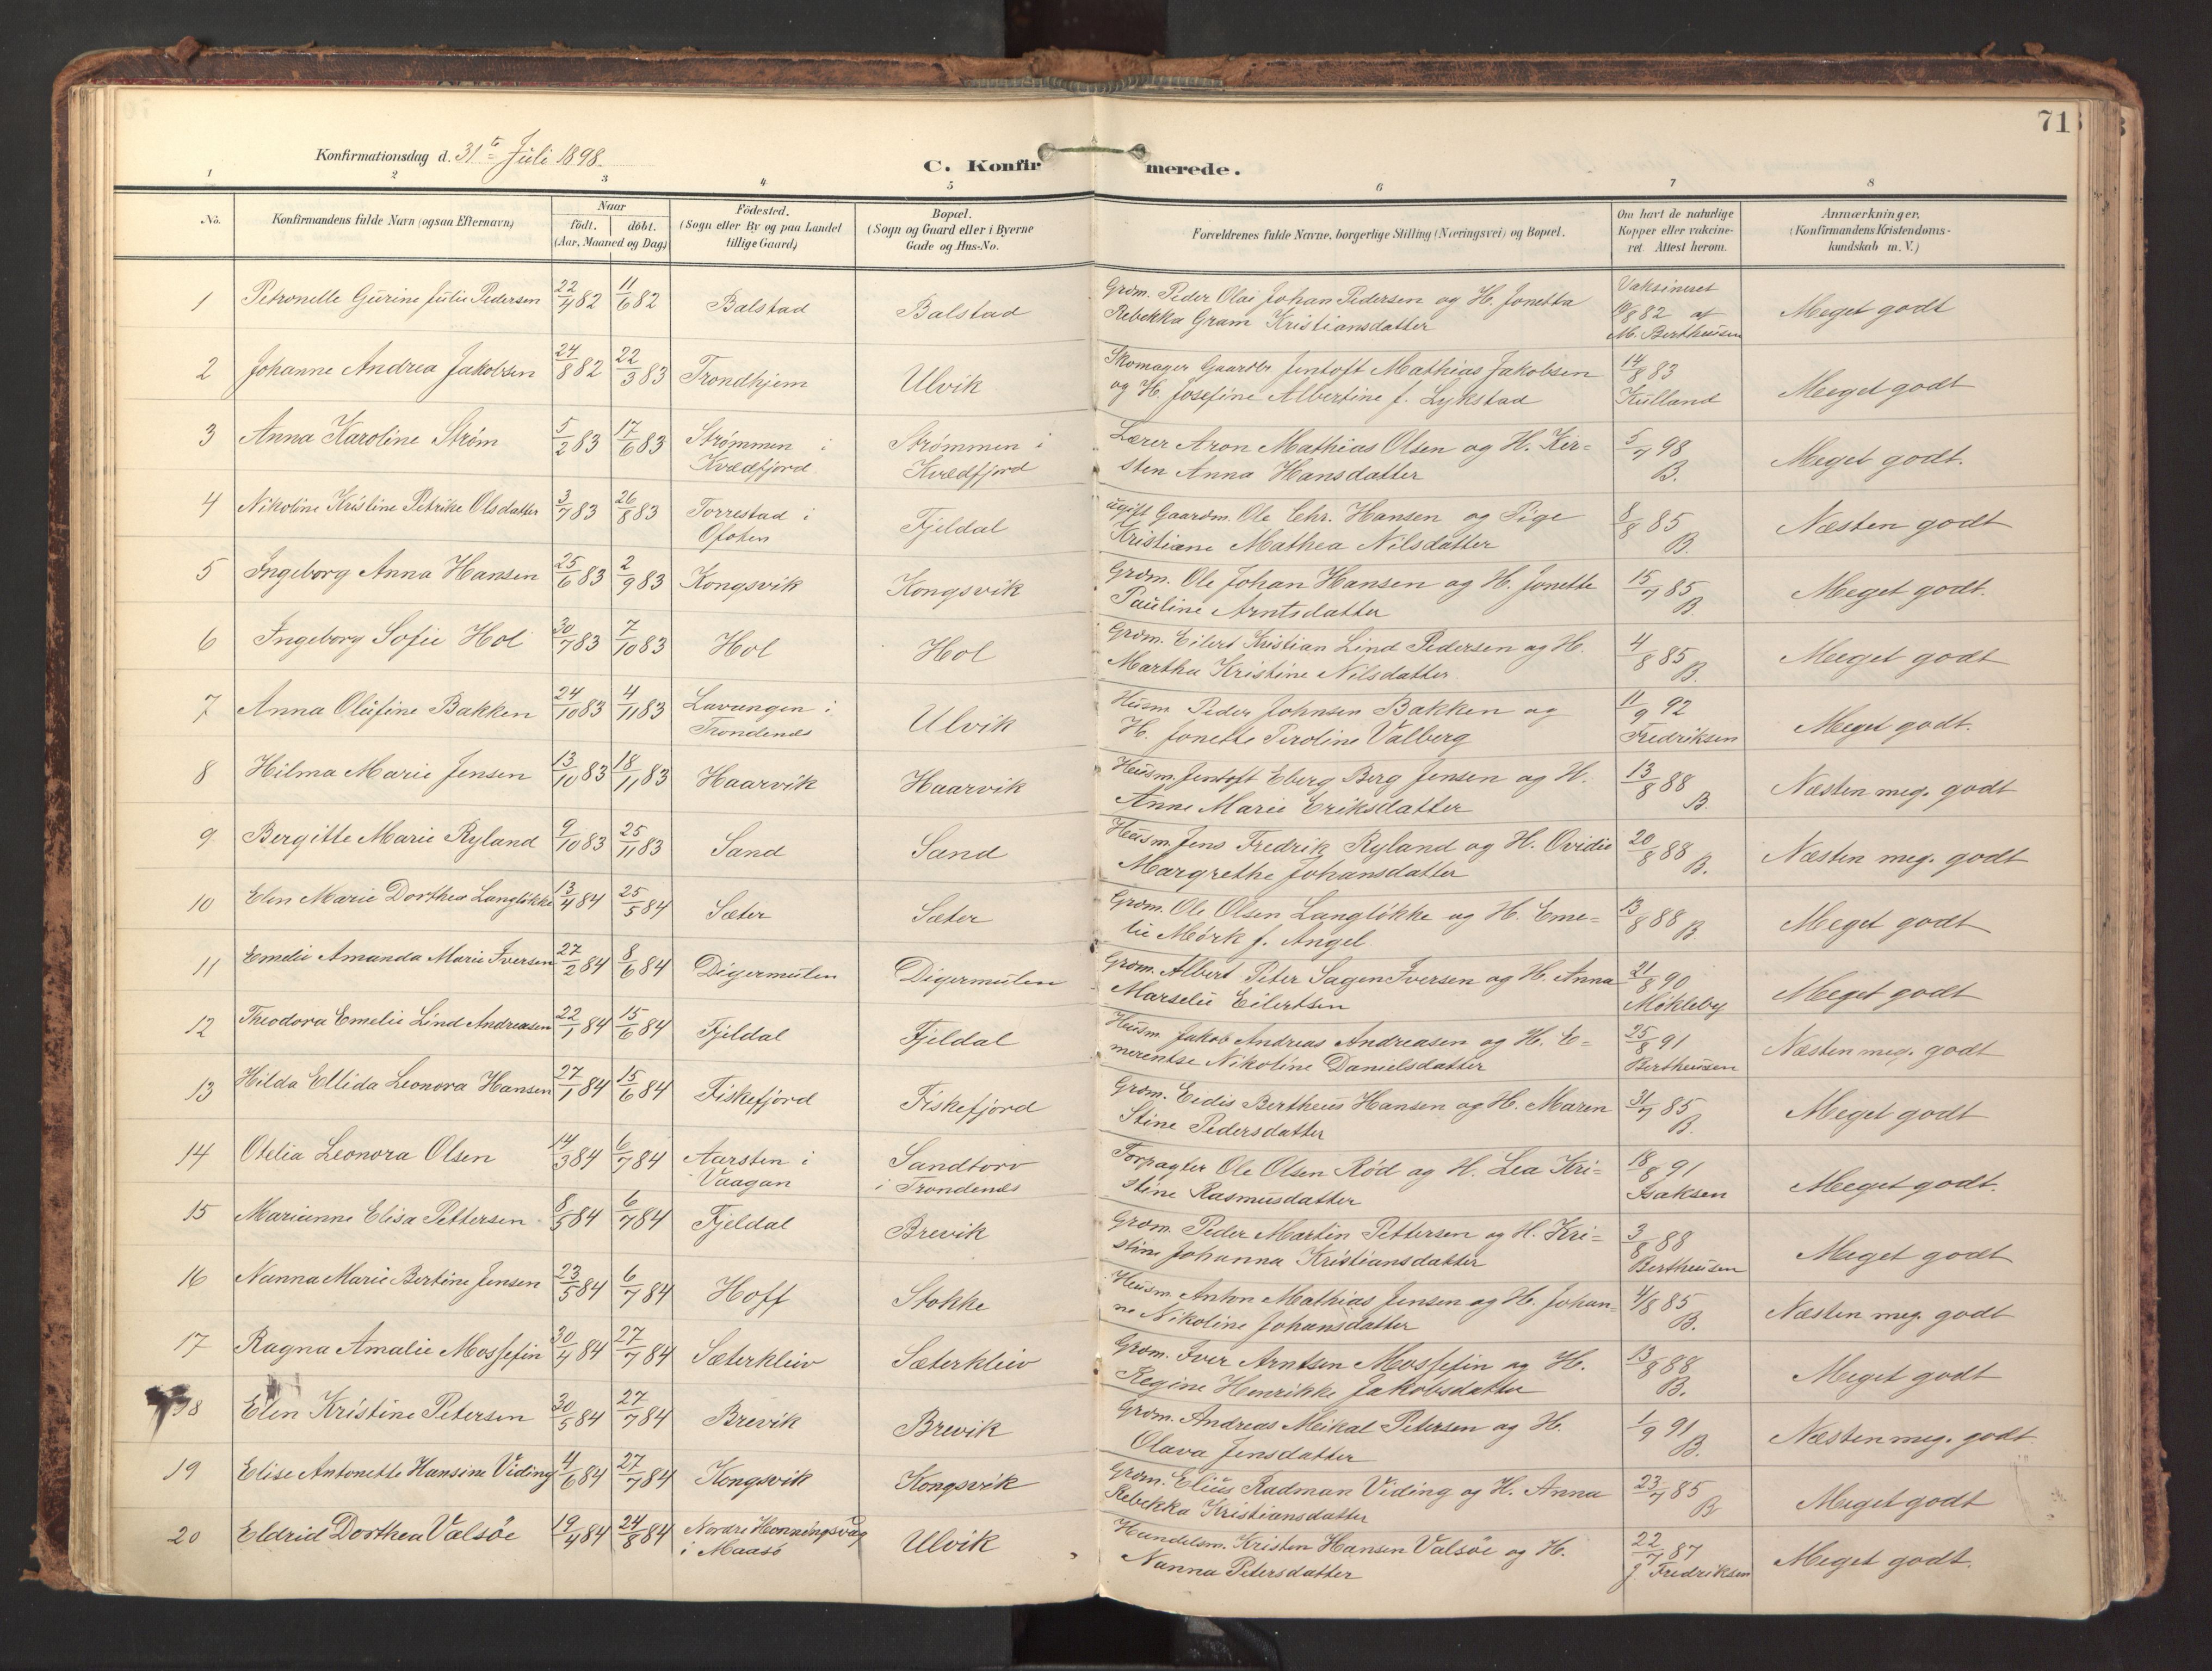 71
Konfirmationsdag d. 31te Juli 1898.
C. Konfirmerede.
1 2 3 4 5 6 7 8
No. Konfirmandens fulde Navn (ogsaa Efternavn) Naar født. døbt. (Aar, Maaned og Dag) Fødested. (Sogn eller By og paa Landet tillige Gaard) Bopæl. (Sogn og Gaard eller i Byerne Gade og Hus-No. Forældrenes fulde Navne, borgerlige Stilling (Næringsvei) og Bopæl. Om havt de naturlige Kopper eller vakcineret. Attest herom. Anmærkninger. (Konfirmandens Kristendomskundskab m. V.)
1 Petronelle Gurine Julie Pedersen 22/4 82 11/6 82 Balstad Balstad Grdm. Peder Olai Johan Pedersen og H. Jonetta Vaksineret Meget godt
Rebekka Gram Kristiansdatter 10/8 82 af
M. Bertheusen
2 Johanne Andrea Jakobsen 24/8 82 22/3 83 Trondhjem Ulvik Skomager Gaardbr Jentoft Mathias Jakobsen 14/8 83 Meget godt
og H. Josefine Albertine f. Lykstad Kulland
3 Anna Karoline Strøm 5/2 83 17/6 83 Strømmen i Strømmen i Lærer Aron Mathias Olsen og H. Kir= 5/7 98 Meget godt.
Kvædfjord Kvædfjord sten Anna Hansdatter B.
4 Nikoline Kristine Petrike Olsdatter 3/7 83 26/8 83 Torrestad i Fjeldal ugift Gaardm. Ole Chr. Hansen og Pige 8/8 85 Næsten godt
Ofoten Kristiane Mathea Nilsdatter B.
5 Ingeborg Anna Hansen 25/6 83 2/9 83 Kongsvik Kongsvik Grdm. Ole Johan Hansen og H. Jonette 15/7 85 Meget godt.
Pauline Arntsdatter B
6 Ingeborg Sofie Hol 30/7 83 7/10 83 Hol Hol Grdm. Eilert Kristian Lind Pedersen og H. 4/8 85 Meget godt
Martha Kristine Nilsdatter B.
7 Anna Olufine Bakken 24/10 83 4/11 83 Lavangen i Ulvik Husm. Peder Johnsen Bakken og 11/9 92 Meget godt.
Trondenes H. Jonette Peroline Valberg Fredriksen
8 Hilma Marie Jensen 13/10 83 18/11 83 Haarvik Haarvik Husm. Jentoft Eberg Berg Jensen og H. 13/8 88 Næsten meg. godt
Anne Marie Eriksdatter B.
9 Bergitte Marie Ryland 9/10 83 25/11 83 Sand Sand Husm. Jens Fredrik Ryland og H. Ovidie 20/8 88 Næsten meg. godt
Margrethe Johansdatter B.
10 Elen Marie Dorthea Langløkke 13/4 84 25/5 84 Sæter Sæter Grdm. Ole Olsen Langløkke og H. Eme= 13/8 88 Meget godt
lie Mørk f. Angel B.
11 Emelie Amanda Marie Iversen 27/2 84 8/6 84 Digermulen Digermulen Grdm. Albert Peter Sagen Iversen og H. Anna 21/8 90 Meget godt
Marselie Eilertsen Mökleby
12 Theodora Emelie Lind Andreasen 22/1 84 15/6 84 Fjeldal Fjeldal Husm. Jakob Andreas Andreasen og H. E= 25/8 91 Næsten meg. godt
merentse Nikoline Danielsdatter Bertheusen
13 Hilda Ellida Leonora Hansen 27/1 84 15/6 84 Fiskefjord Fiskefjord Grdm. Eidis Bertheus Hansen og H. Maren 31/7 85 Meget godt
Stine Pedersdatter B.
14 Otelia Leonora Olsen 14/3 84 6/7 84 Aarsten i Sandtorv Forpagter Ole Olsen Rød og H. Lea Kri= 18/8 91 Meget godt.
Vaagan i Trondenes stine Rasmusdatter Isaksen
15 Marianne Elisa Pettersen 8/5 84 6/7 84 Fjeldal Brevik Grdm. Peder Martin Pettersen og H. Kri= 3/8 88 Meget godt
stine Johanna Kristiansdatter Bertheusen
16 Nanna Marie Bertine Jensen 23/5 84 6/7 84 Hoff Stokke Husm. Anton Mathias Jensen og H. Johan= 4/8 85 Næsten meg. godt
ne Nikoline Johansdatter B.
17 Ragna Amalie Mossefin 30/4 84 27/7 84 Sæterkleiv Sæterkleiv Grdm. Iver Arntsen Mossefin og H. 13/8 88 Meget godt
Regine Henrikke Jakobsdatter B.
18 Elen Kristine Petersen 30/5 84 27/7 84 Brevik Brevik Grdm. Andreas Meikal Petersen og H. 1/9 91 Næsten meg. godt
Olava Jensdatter B.
19 Elise Antonette Hansine Viding 4/6 84 27/7 84 Kongsvik Kongsvik Grdm. Elius Radman Viding og H. Anna 23/7 85 Meget godt
Rebekka Kristiansdatter B
20 Eldrid Dorthea Valsøe 19/4 84 24/8 84 Nordre Honningsvaag Ulvik Handelsm. Kristen Hansen Valsøe og H. 22/7 87 Meget godt.
i Maasø Nanna Petersdatter J Fredriksen